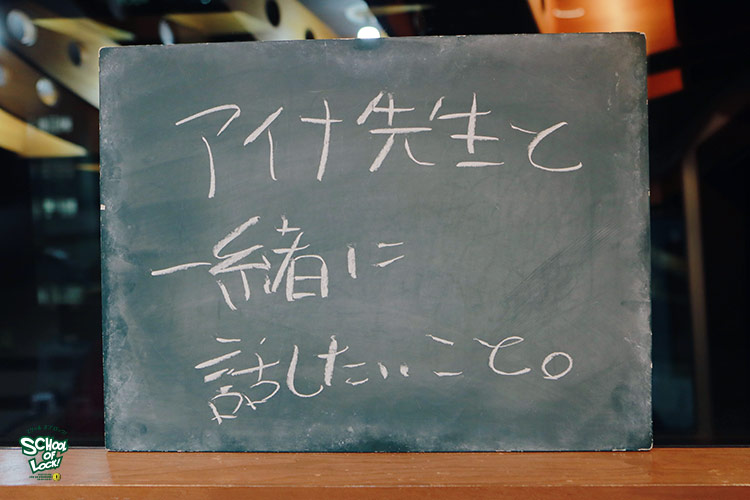 アイナ先生と
一緒に
話したいこと。
SCHOOL
OF
LOCK!